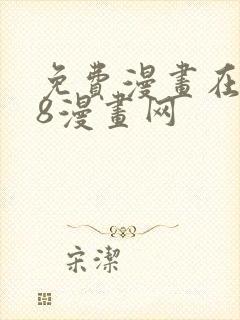 免費漫畫在
8漫畫网
宋潔